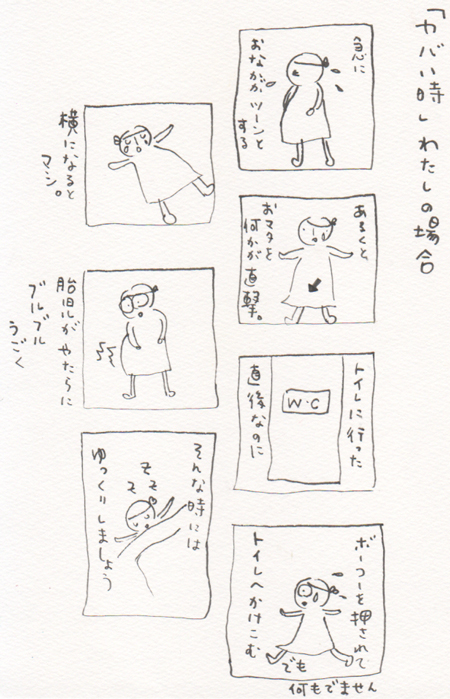 「ヤバい時」わたしの場合
急に
おなかが、ツーンと
する
あるくと、
おマタを
何かが直撃。
トイレに行った
直後なのに
W・C
ボーコーを押されて
トイレへかけこむ
でも
何もでません
横になると
マシ。
胎児がやたらに
ブルブル
うごく
そんな時には
ゆっくりしましょう
そそそ